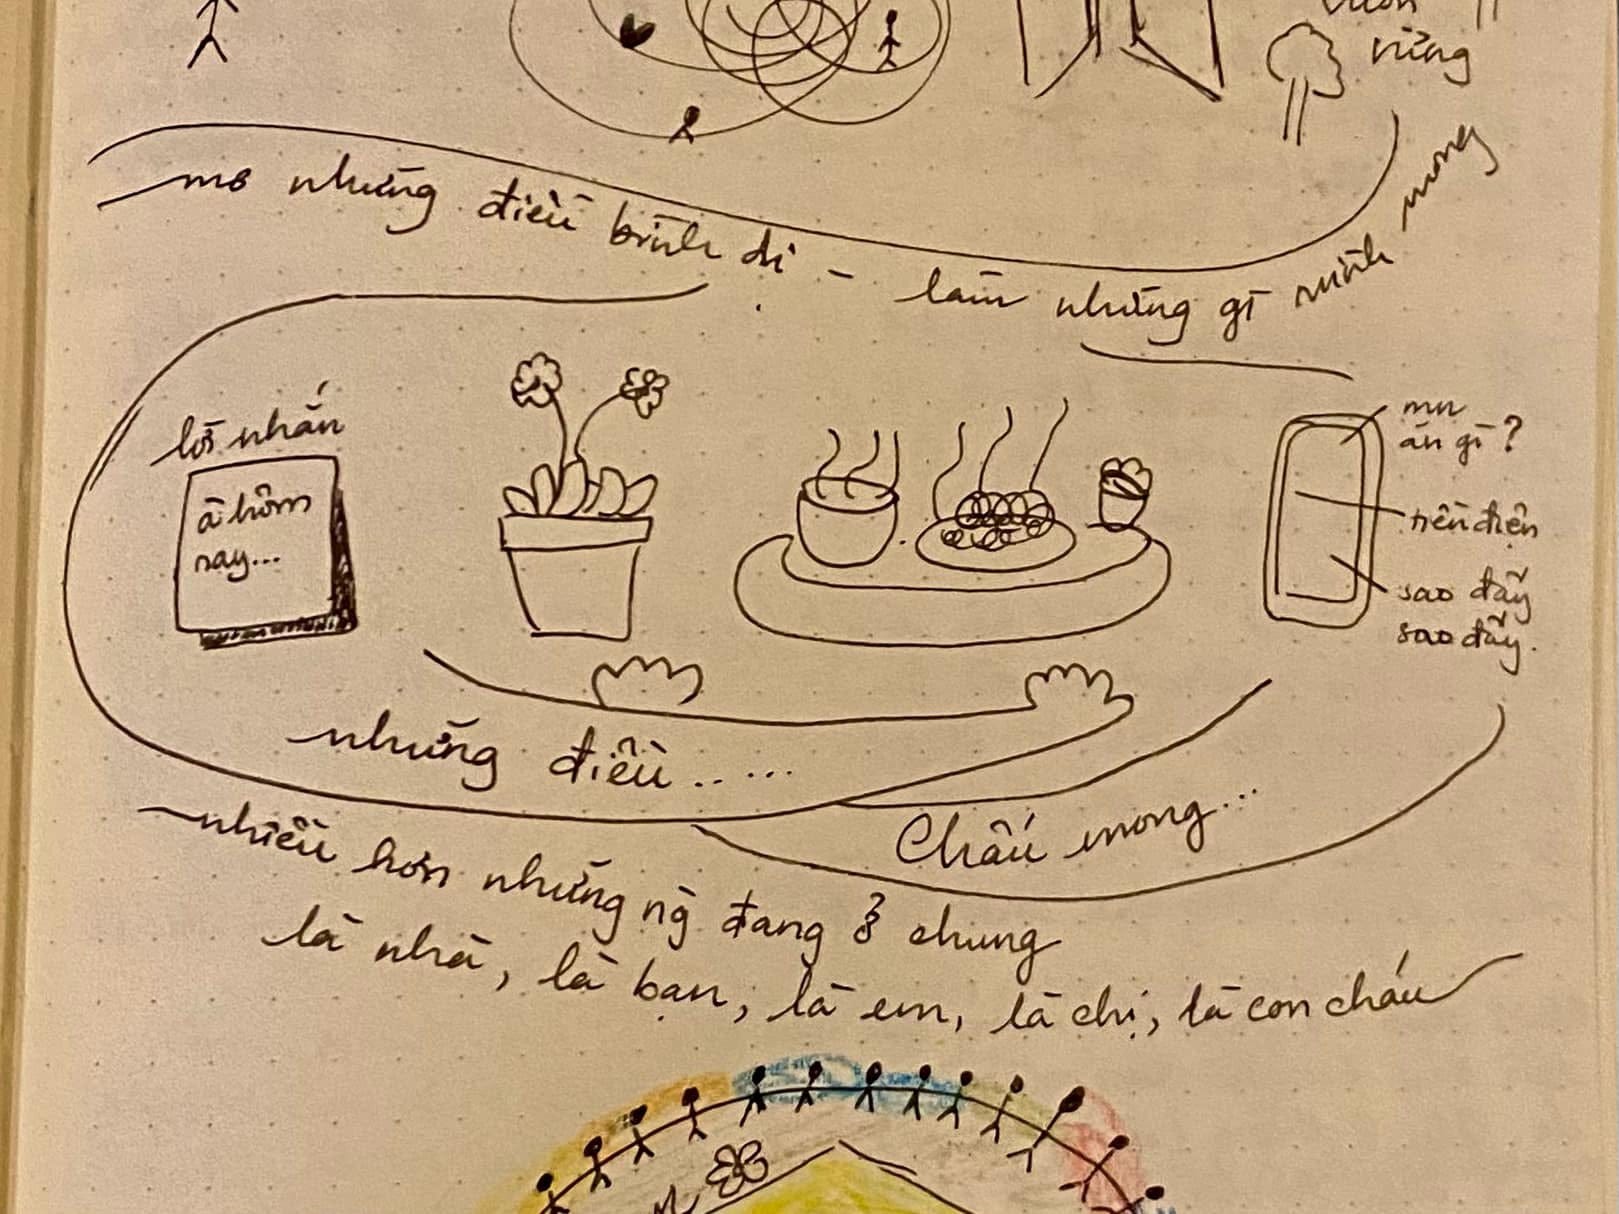 rừng
mơ những điều bình dị - làm những gì mình mong
lời nhắn
à hôm
nay...
mn
ăn gì?
tiền điện
sao đấy
sao đấy.
những điều......
Cháu mong...
nhiều hơn những ng đang ở chung
là nhà, là bạn, là em, là chị, là con cháu